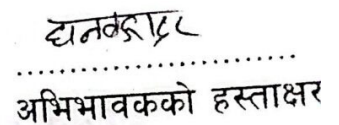 धनबहादुर
...........................
अभिभावकको हस्ताक्षर